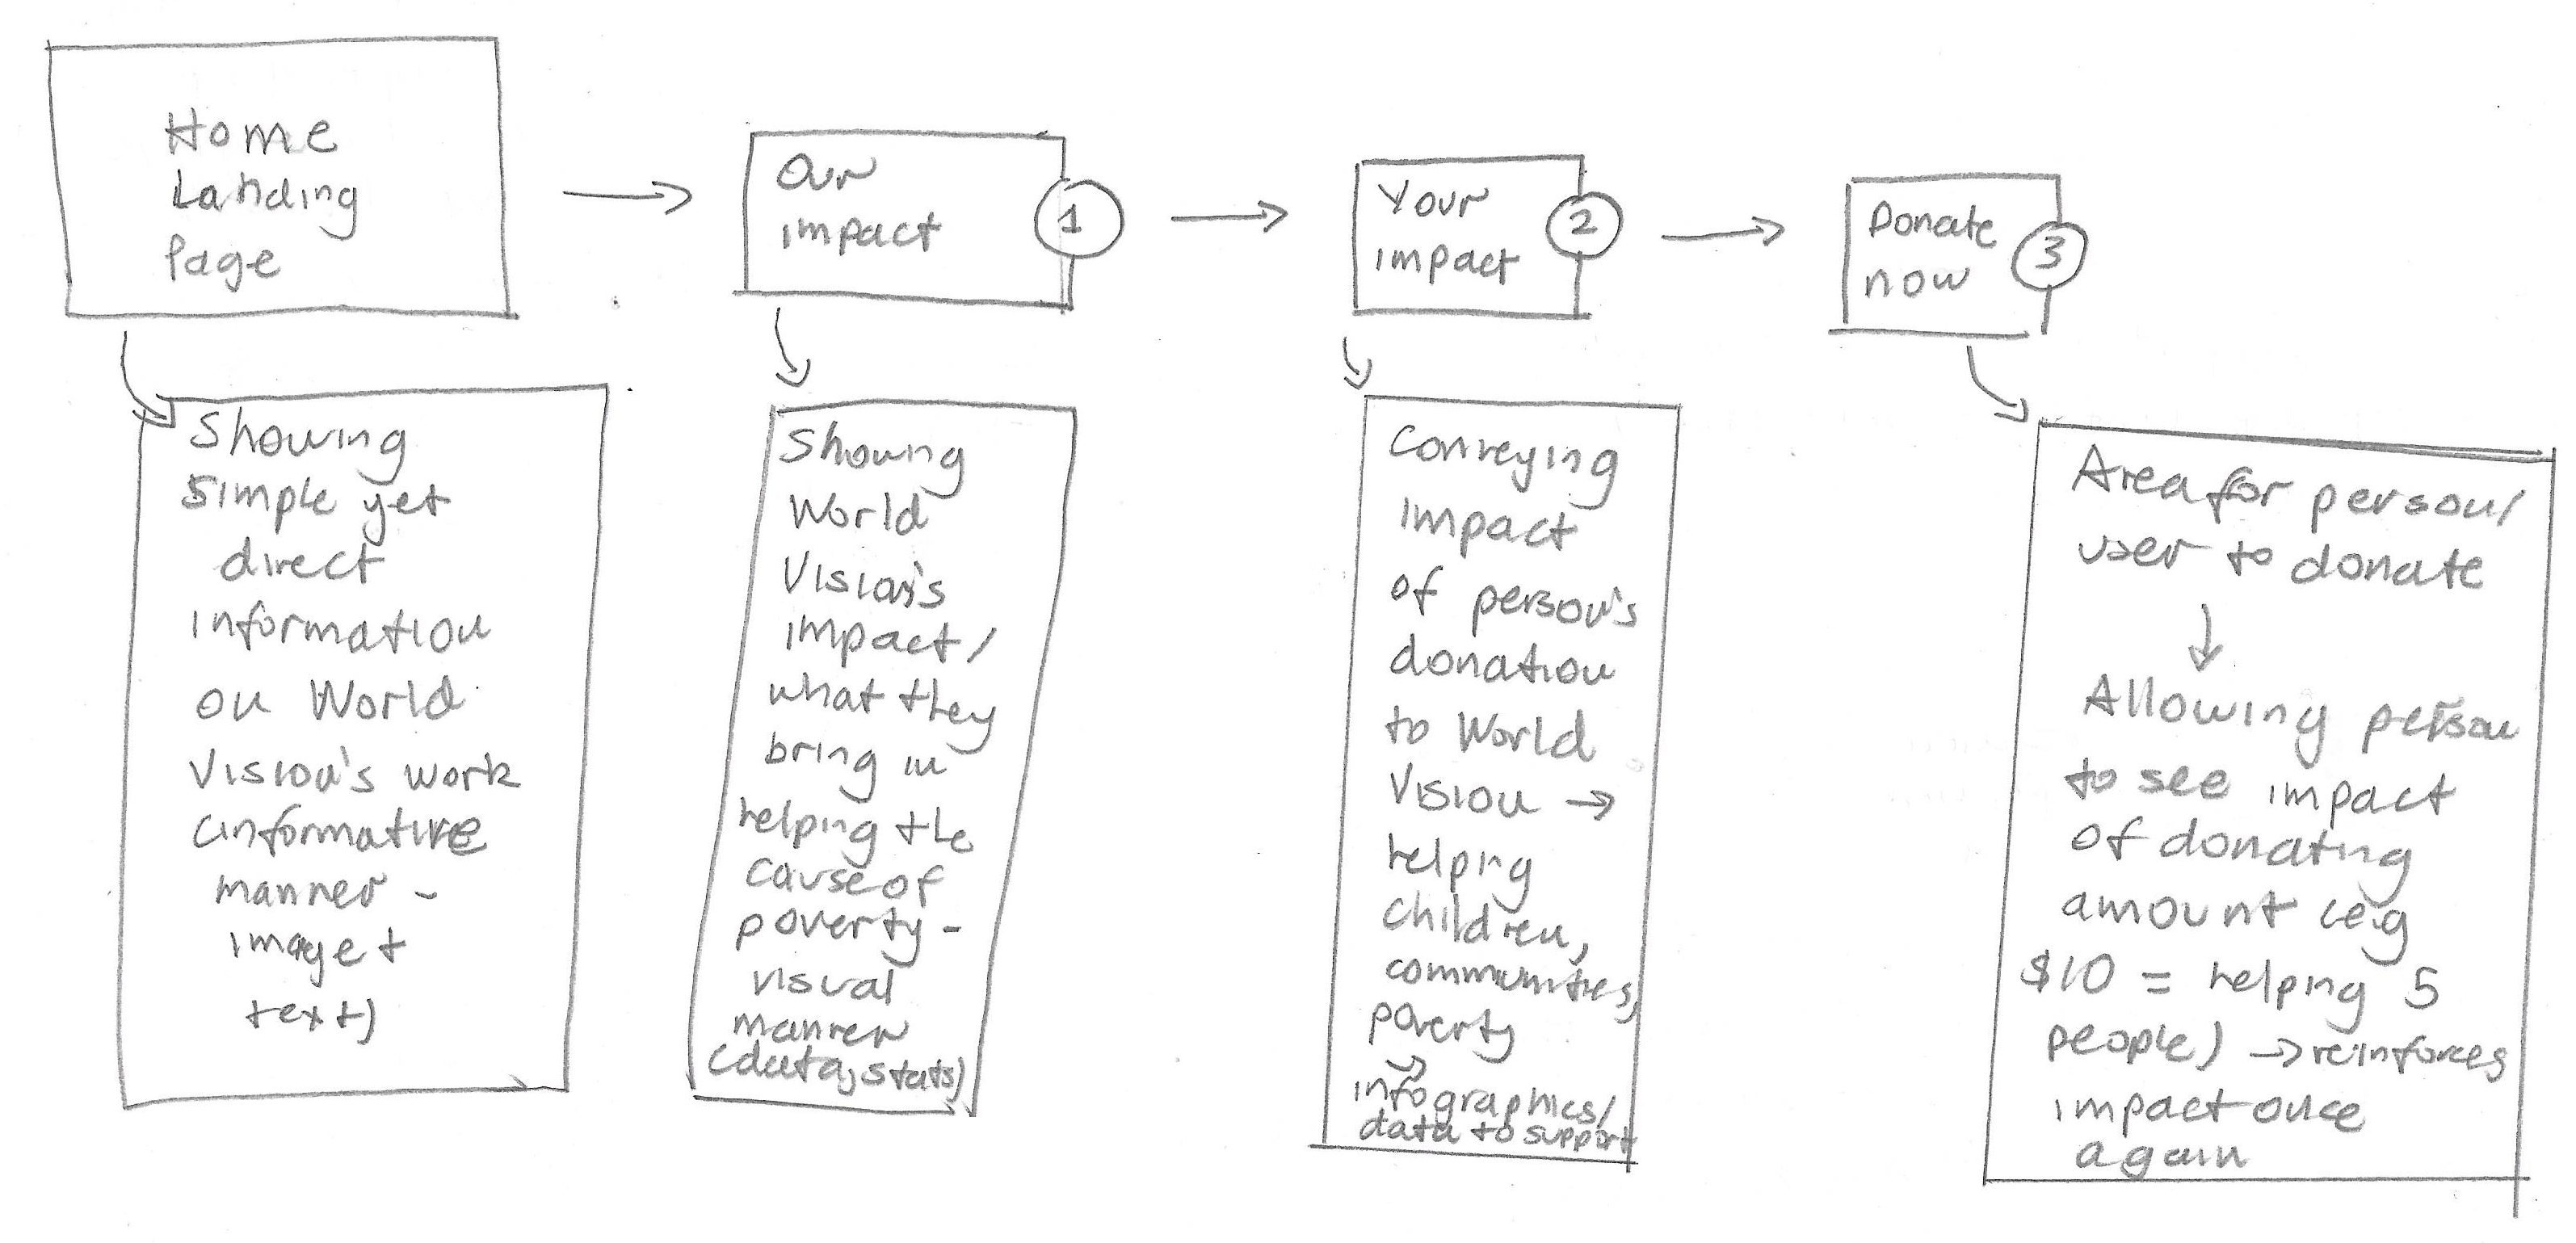 Home
Landing
Page
Our
impact
1
Your
impact
2
Donate
now
3
Showing
simple yet
direct
information
on World
Vision's work
(informative
manner -
image +
text)
Showing
World
Vision's
impact/
what they
bring in
helping the
cause of
poverty -
visual
manner
(data, stats)
Conveying
impact
of person's
donation
to World
Vision →
helping
children,
communities,
poverty
→
infographics/
data to support
Area for person/
user to donate
↓
Allowing person
to see impact
of donating
amount (e.g
$10 = helping 5
people) → reinforces
impact once
again